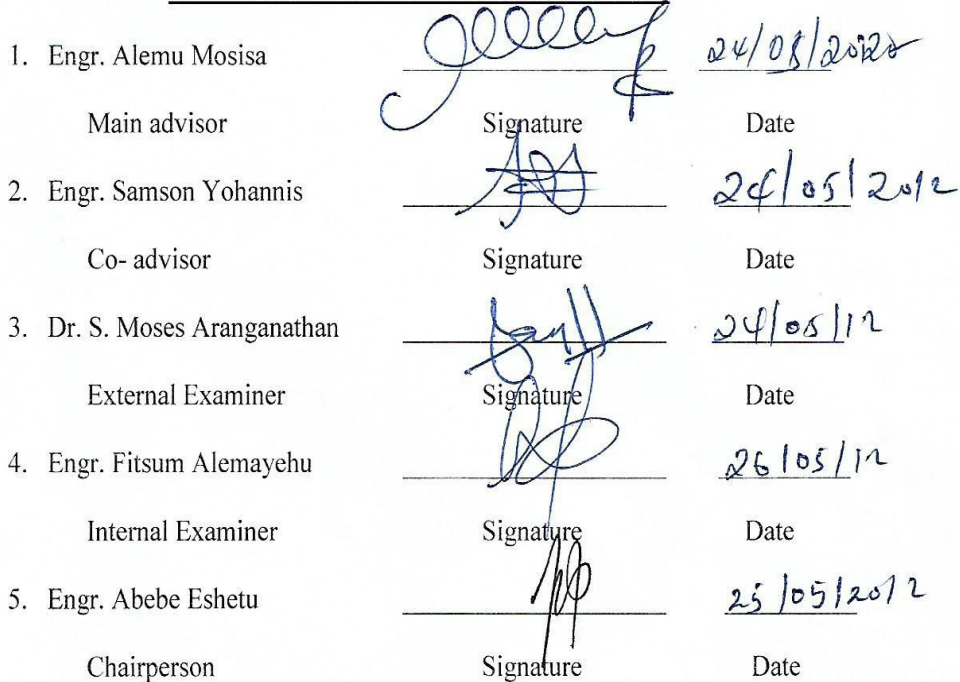 1. Engr. Alemu Mosisa 24/05/2020
Main advisor Signature Date
2. Engr. Samson Yohannis 24/05/2012
Co- advisor Signature Date
3. Dr. S. Moses Aranganathan 24/05/12
External Examiner Signature Date
4. Engr. Fitsum Alemayehu 26/05/12
Internal Examiner Signature Date
5. Engr. Abebe Eshetu 25/05/2012
Chairperson Signature Date